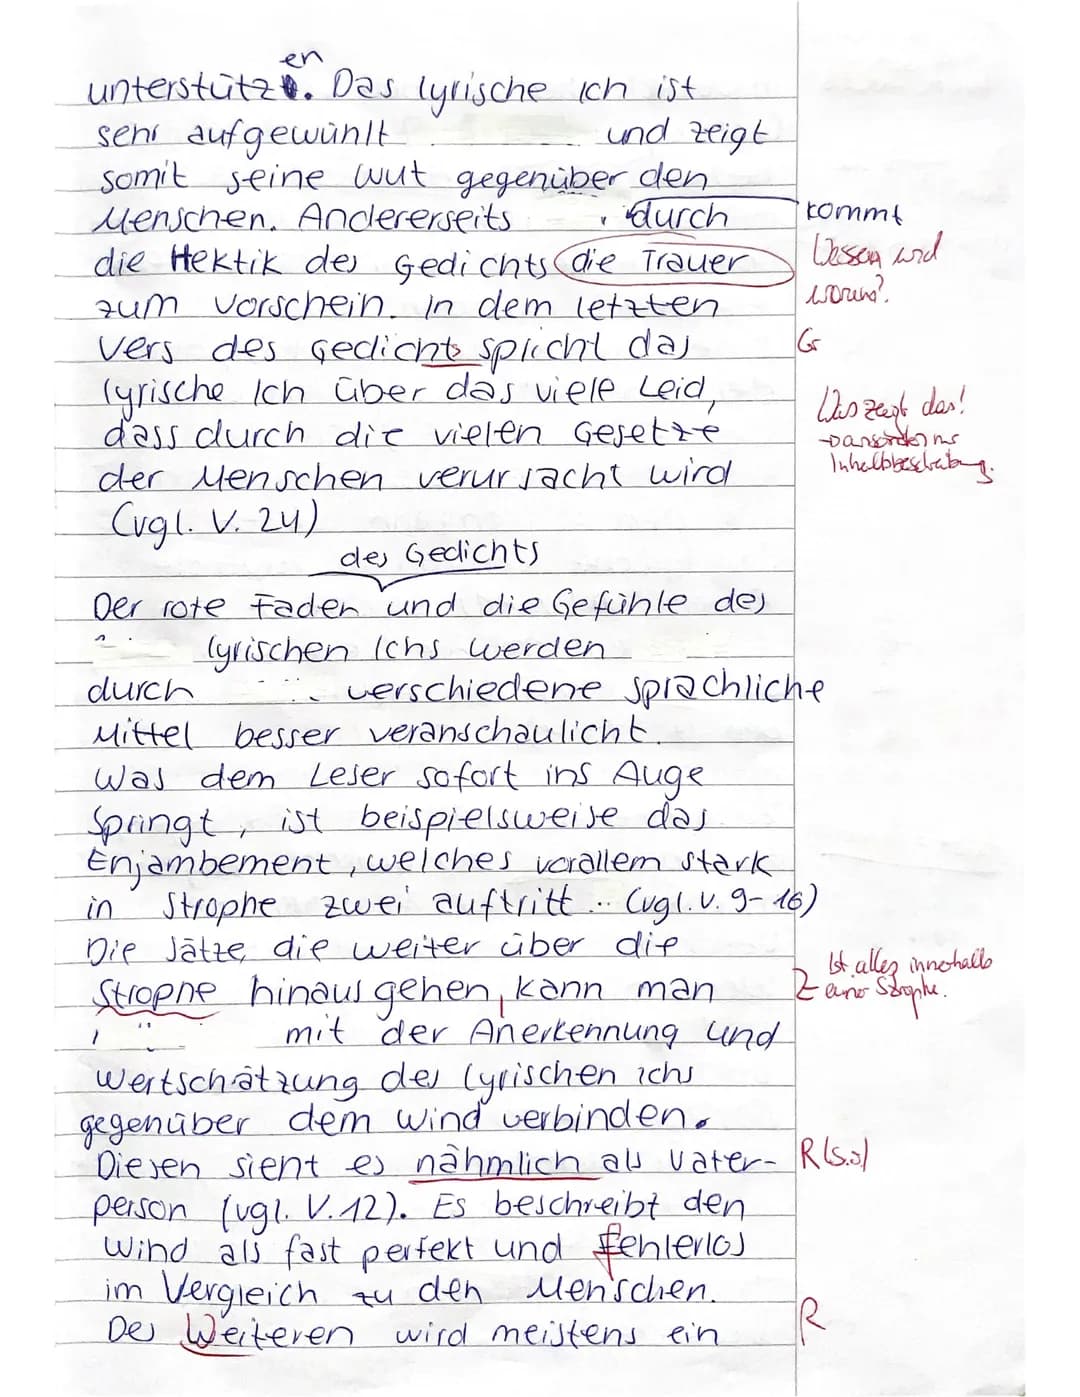 en
unterstütz. Das lyrische Ich ist
sehr aufgewühlt und zeigt
somit seine Wut gegenüber den
Menschen. Andererseits durch kommt
die Hektik des Gedichts die Trauer
Wessen und
worum?
zum vorschein. In dem letzten
Vers des Gedichts spricht das Gr
lyrische Ich über das viele Leid,
dass durch die vielen Gesetze
der Menschen verursacht wird
Was zeigt das!
Inhaltsbeschreibung.
(vgl. V. 24)
des Gedichts
Der rote Faden und die Gefühle des
lyrischen Ichs werden
durch verschiedene sprachliche
Mittel besser veranschaulicht.
Was dem Leser sofort ins Auge
Springt, ist beispielsweise das
Enjambement, welches vorallem stark
in Strophe zwei auftritt (vgl. V. 9-16)
Die Sätze, die weiter über die
Strophe hinaus gehen, kann man Z
Ist alles innerhalb
einer Strophe.
mit der Anerkennung und
Wertschätzung des lyrischen ichs
gegenüber dem Wind verbinden.
Diesen sieht es nähmlich als Vater- R (s.o)
person (vgl. V. 12). Es beschreibt den
Wind als fast perfekt und fehlerlos
im Vergleich zu den Menschen.
Des Weiteren wird meistens ein R